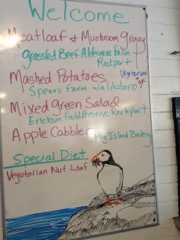 Welcome
Meatloaf & Mushroom Gravy
Grassfed Beef Aldermere Farm
Rockport
Mashed Potatoes
Vegetarian
Spears Farm Waldoboro
Mixed Green Salad
Erickson Fields Preserve Rockport
Apple Cobbler
Island Bakery
Special Diet
Vegetarian Nut Loaf